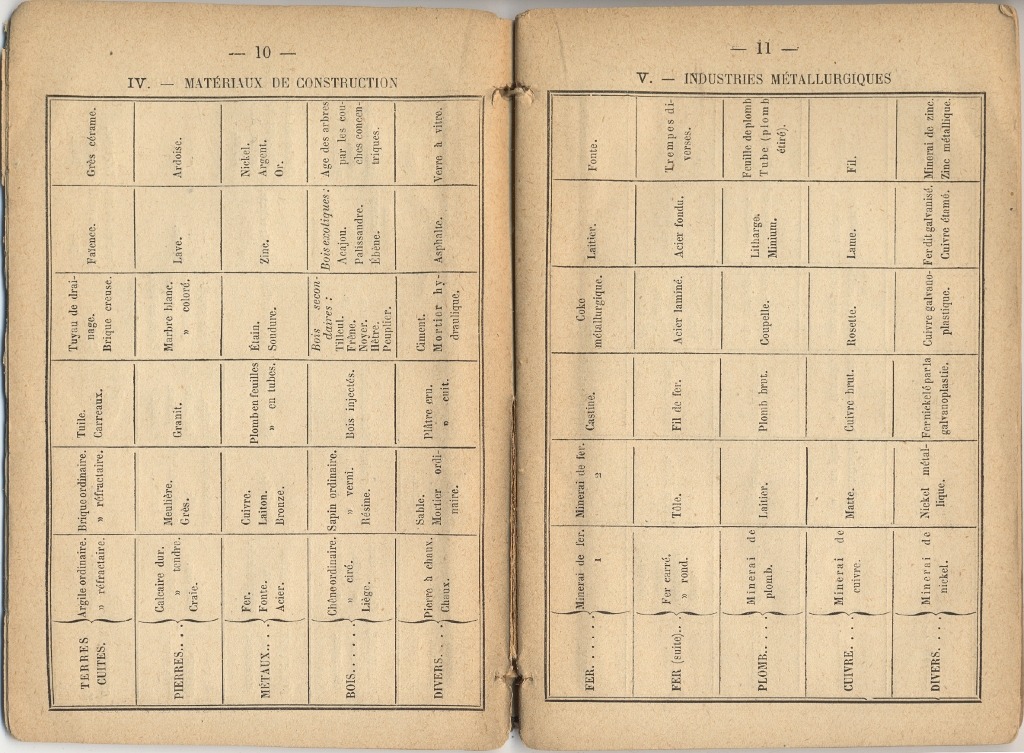 — 10 —
IV. — MATÉRIAUX DE CONSTRUCTION
TERRES
CUITES.
Argile ordinaire.
» réfractaire.
Brique ordinaire.
» réfractaire.
Tuile.
Carreaux.
Tuyau de drai-
nage.
Brique creuse.
Faïence.
Grès cérame.
PIERRES...
Calcaire dur.
» tendre.
Craie.
Meulière.
Grès.
Granit.
Marbre blanc.
» coloré.
Lave.
Ardoise.
MÉTAUX....
Fer.
Fonte.
Acier.
Cuivre.
Laiton.
Bronze.
Plomb en feuilles
» en tubes.
Étain.
Soudure.
Zinc.
Nickel.
Argent.
Or.
BOIS......
Chêne ordinaire.
» ciré.
Liège.
Sapin ordinaire.
» verni.
Résine.
Bois injectés.
Bois secon-
daires :
Tilleul.
Frêne.
Noyer.
Hêtre.
Peuplier.
Bois exotiques :
Acajou.
Palissandre.
Ébène.
Age des arbres
par les cou-
ches concen-
triques.
DIVERS....
Pierre à chaux.
Chaux.
Sable.
Mortier ordi-
naire.
Plâtre cru.
» cuit.
Ciment.
Mortier hy-
draulique.
Asphalte.
Verre à vitre.
— 11 —
V. — INDUSTRIES MÉTALLURGIQUES
FER.......
Minerai de fer.
1
Minerai de fer.
2
Castine.
Coke
métallurgique.
Laitier.
Fonte.
FER (suite)...
Fer carré.
» rond.
Tôle.
Fil de fer.
Acier laminé.
Acier fondu.
Trempes di-
verses.
PLOMB.....
Minerai de
plomb.
Laitier.
Plomb brut.
Coupelle.
Litharge.
Minium.
Feuille de plomb
Tube (plomb
étiré).
CUIVRE....
Minerai de
cuivre.
Matte.
Cuivre brut.
Rosette.
Lame.
Fil.
DIVERS.....
Minerai de
nickel.
Nickel métal-
lique.
Fer nickelé par la
galvanoplastie.
Cuivre galvano-
plastique.
Fer dit galvanisé.
Cuivre étamé.
Minerai de zinc.
Zinc métallique.